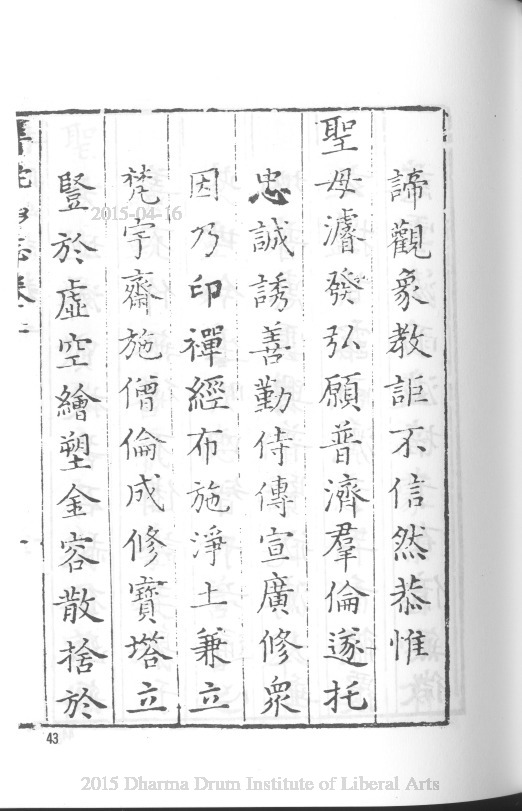 諦觀象教詎不信然恭惟
聖母濬發弘願普濟羣倫遂托
忠誠誘善勤侍傳宣廣修衆
因乃印禪經布施淨土兼立
梵宇齋施僧倫成修寶塔立
豎於虛空繪塑金容散捨於
43
2015-04-16
2015 Dharma Drum Institute of Liberal Arts